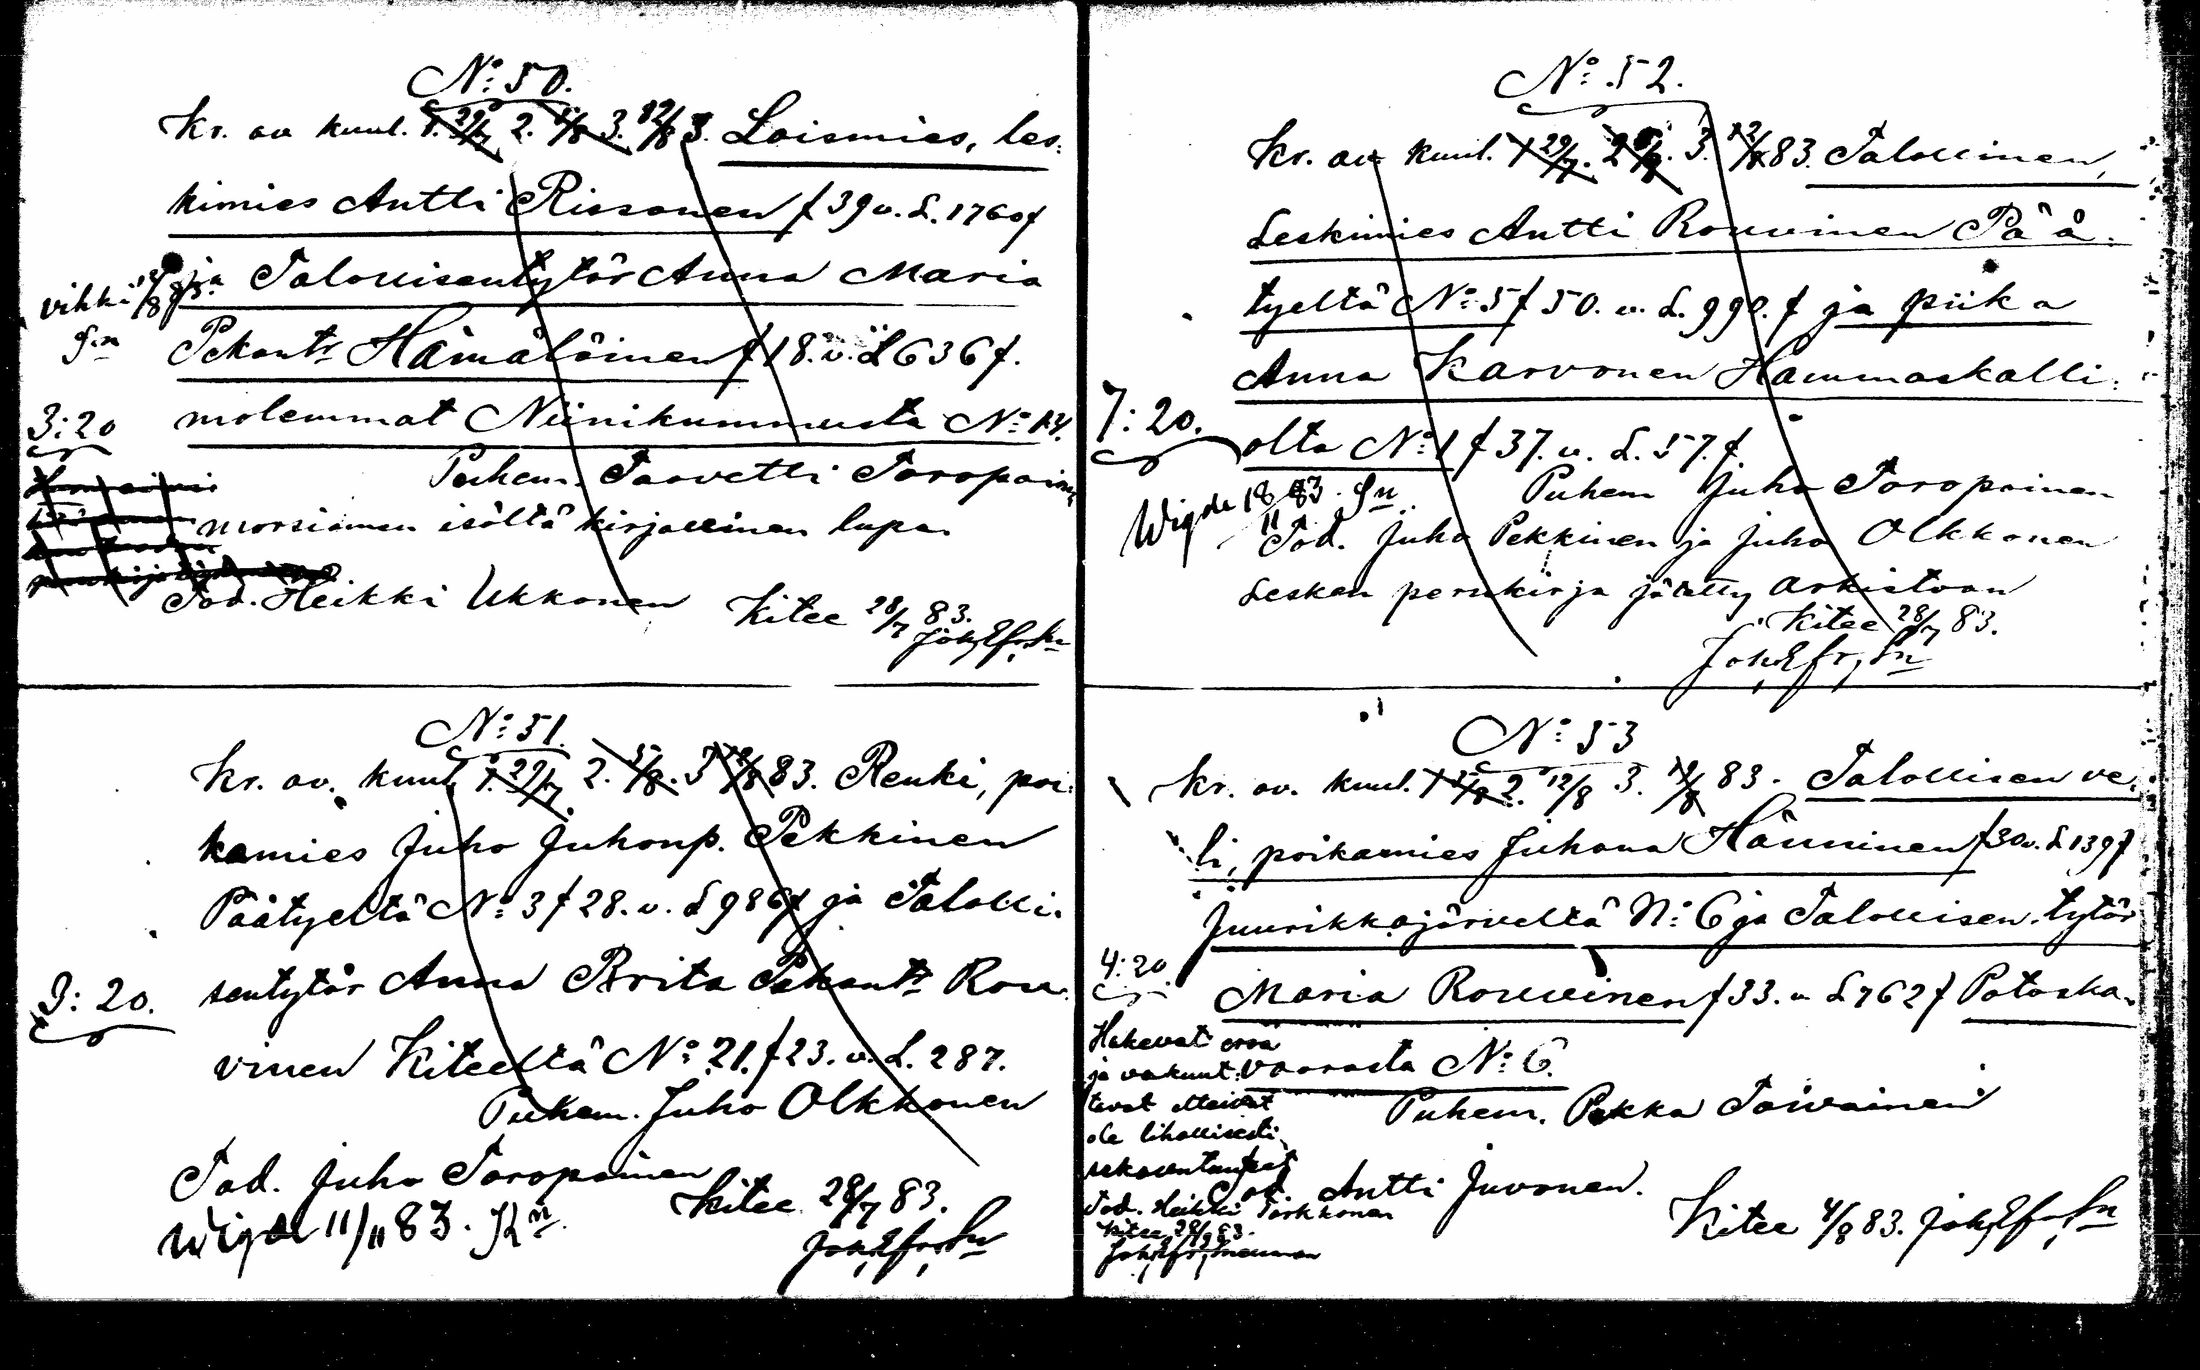 No: 50.
Kr. av kuul. 1. 29/7 2. 5/8 3. 12/8 83. Loismies, les-
kimies Antti Rissonen f 39 v. L. 1760 f
ja Talollisentytär Anna Maria
vihki 83.
Sn
Pekant. Hämäläinen f 18. v. L 636 f.
3:20
molemmat Niinikummusta No: 14.
Puhem. Taavetti Toropain
morsiamen isältä kirjallinen lupa.
Tod. Heikki Ukkonen Kitee 28/7 83.
Joh, Efr, Sn
No: 51.
Kr. av. kuul. 1. 29/7. 2. 5/8. 3 12/8 83. Renki, poi-
kamies Juho Juhonp. Pekkinen
Päätyeltä No: 3 f 28. v. L 986 f ja Talolli-
3:20.
sentytär Anna Brita Pekant. Rou-
vinen Kiteeltä No: 21. f 23. v. L. 287.
Puhem. Juho Olkkonen
Tod. Juho Toropainen
Kitee 28/7 83.
Wigde 11/11 83. Kn.
Joh, Efr, Sn
No: 52.
Kr. av kuul. 1 29/7. 2 5/8. 3. 12/8 83. Talollinen,
Leskimies Antti Rouvinen Pää-
tyeltä No: 5 f 50. v. L. 990. f ja piika
Anna Karvonen Hammaskalli-
7:20.
olta No: 1 f 37. v. L. 57. f.
Wigde 18/11 83. Sn.
Puhem Juho Toropainen
Tod. Juho Pekkinen ja Juho Olkkonen
Lesken perukirja jätetty arkistoon
Kitee 28/7 83.
Joh, Efr, Sn
No: 53
Kr. av. kuul. 1 5/8 2. 12/8 3. 19/8 83. Talollisen ve-
li, poikamies Juhana Hänninen f 30 v. L 139 f
Juurikkajärveltä No: 6 ja Talollisen tytär
4:20
Maria Rouvinen f 33. v L 762 f Potoska-
vaarasta No: 6.
Puhem. Pekka Toivainen
Tod. Antti Juvonen.
Kitee 4/8 83. Joh, Efr, Sn
Hakevat eroa
ja vakuut-
tavat etteivät
ole lihallisesti
sekaantuneet
Tod. Heikki Torkkonen
Kitee 28/9 83.
Joh, Efr, Sneuman